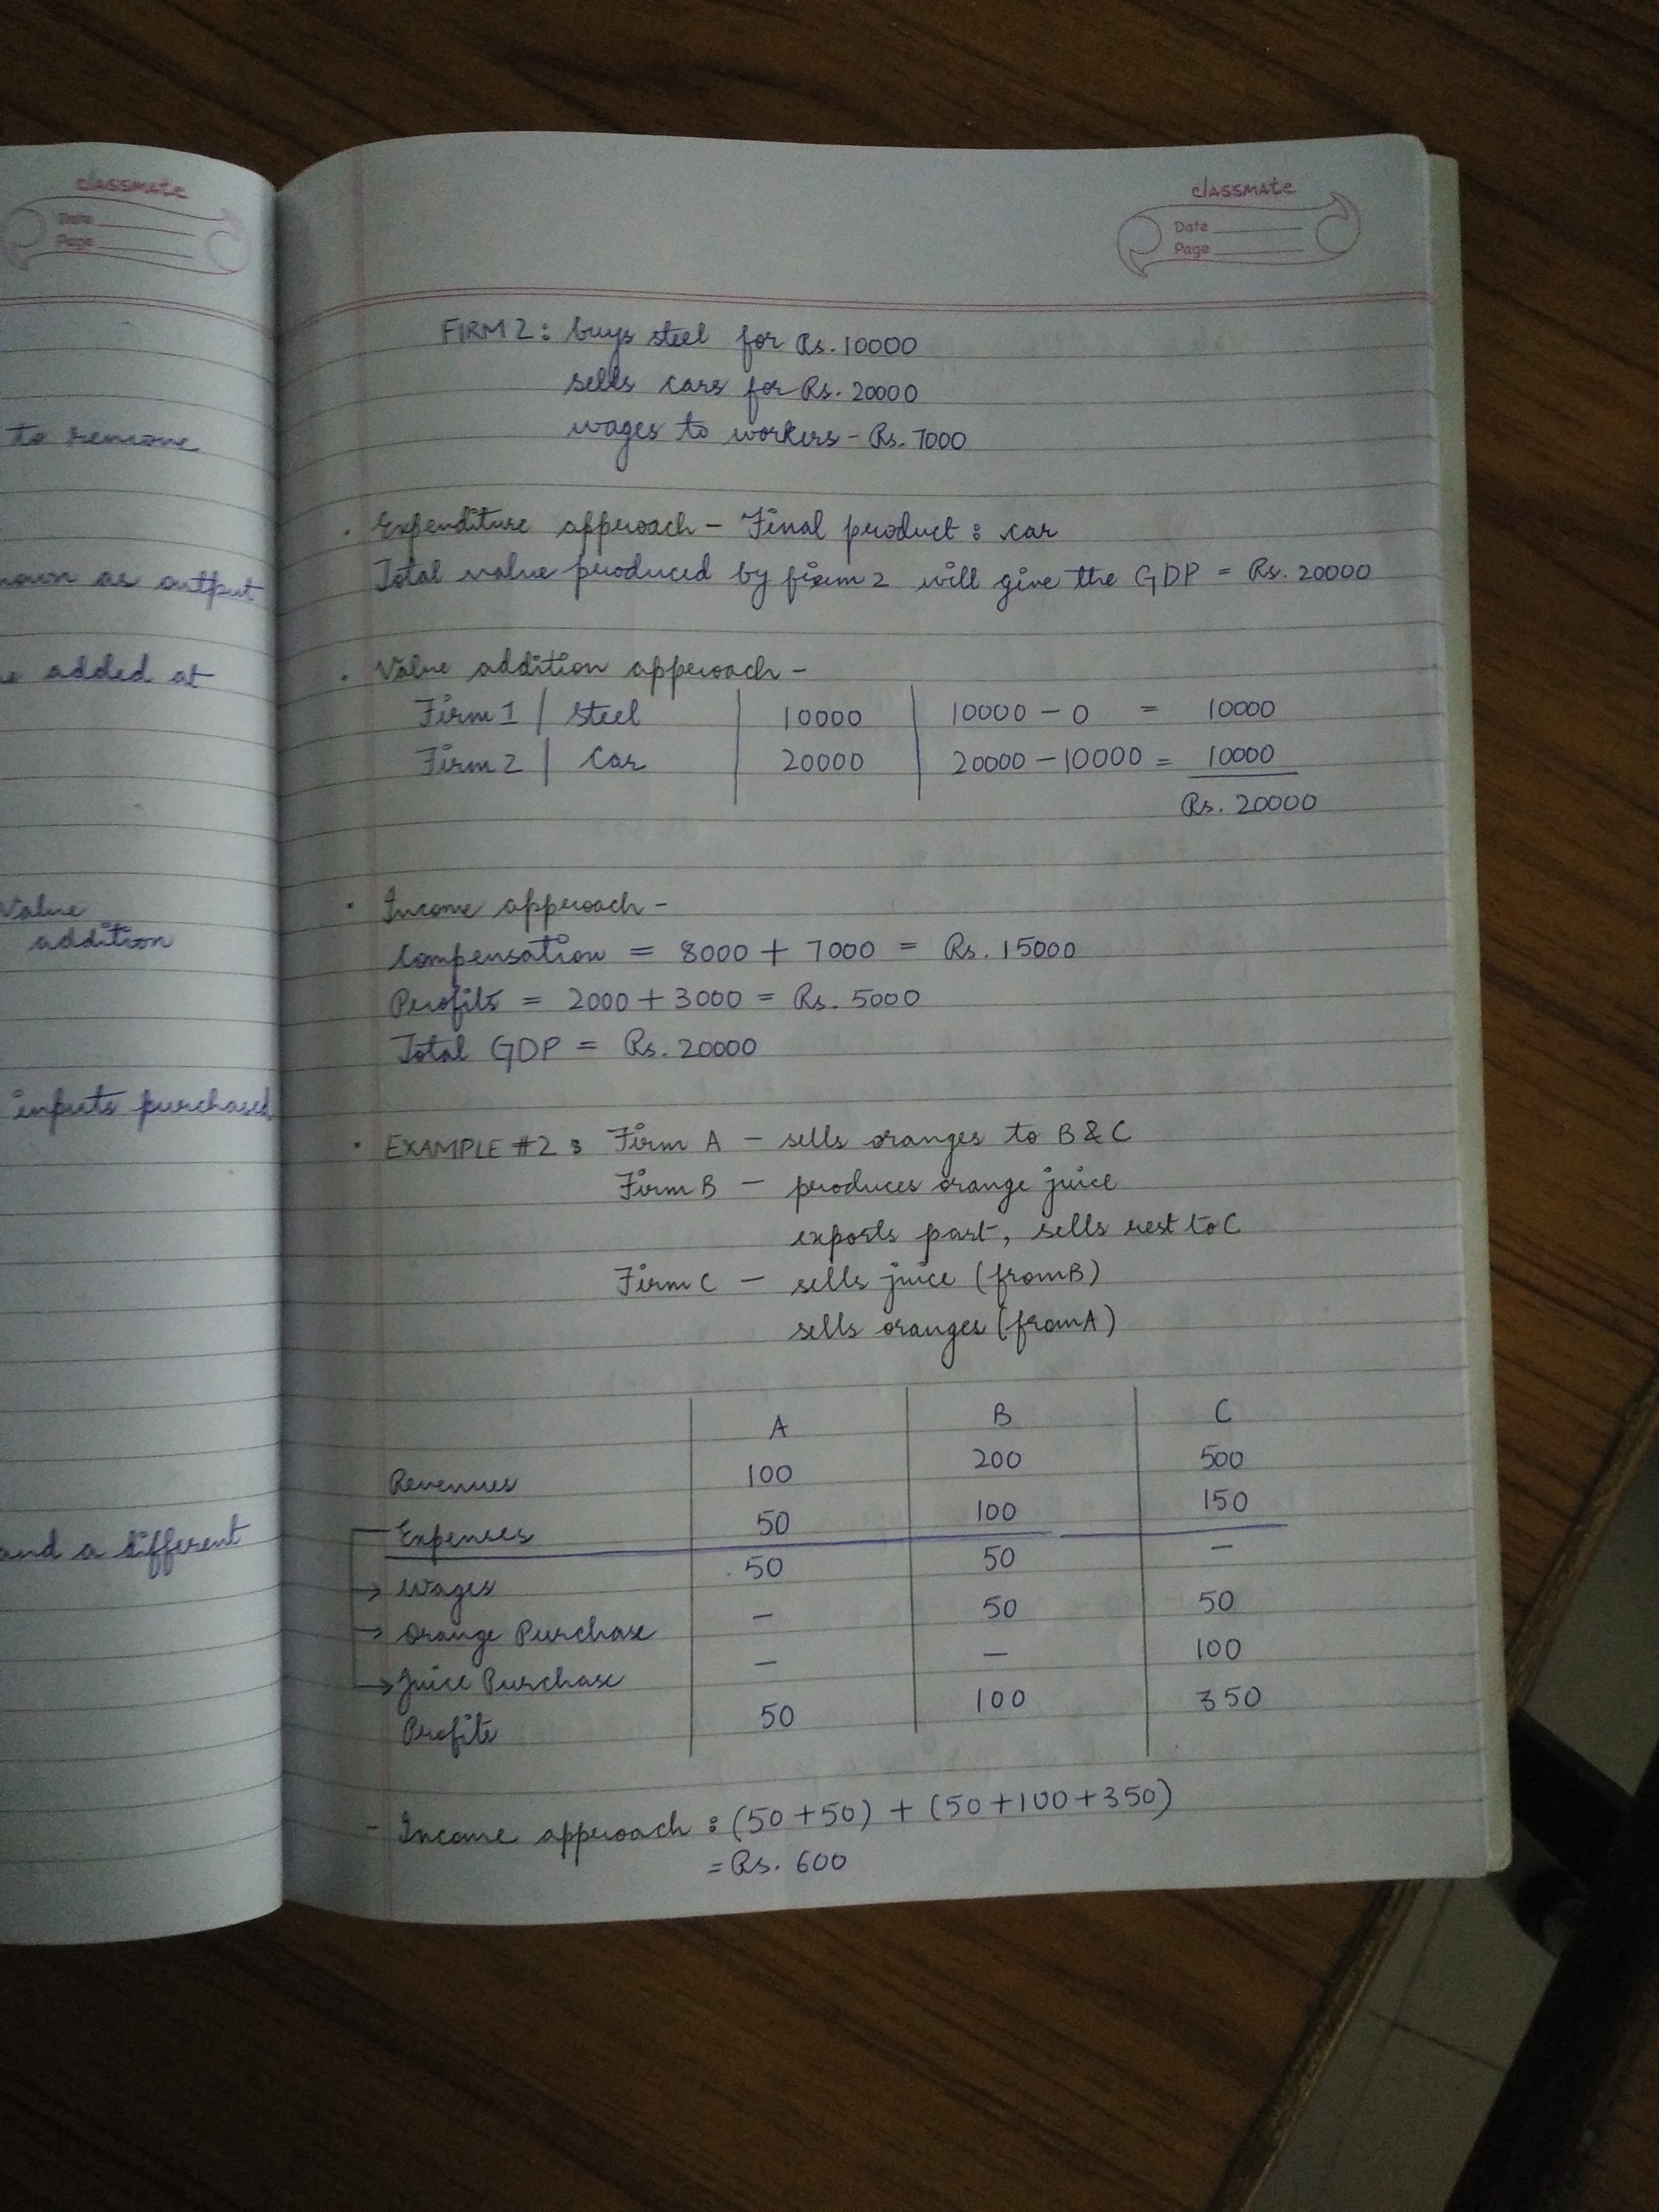 classmate
Date
Page
to remove
as output
added at
Value
addition
inputs purchased
and a different
classmate
Date
Page
FIRM 2: buys steel for Rs. 10000
sells cars for Rs. 20000
wages to workers - Rs. 7000
. Expenditure approach - Final product : car
Total value produced by firm 2 will give the GDP = Rs. 20000
. Value addition approach -
Firm 1 | steel | 10000 | 10000 - 0 = 10000
Firm 2 | Car | 20000 | 20000 - 10000 = 10000
Rs. 20000
. Income approach -
Compensation = 8000 + 7000 = Rs. 15000
Profits = 2000 + 3000 = Rs. 5000
Total GDP = Rs. 20000
. EXAMPLE #2 : Firm A - sells oranges to B & C
Firm B - produces orange juice
exports part, sells rest to C
Firm C - sells juice (from B)
sells oranges (from A)
A B C
Revenues 100 200 500
Expenses 50 100 150
→ Wages 50 50 -
→ Orange Purchase - 50 50
→ Juice Purchase - - 100
Profits 50 100 350
- Income approach : (50+50) + (50+100+350)
= Rs. 600